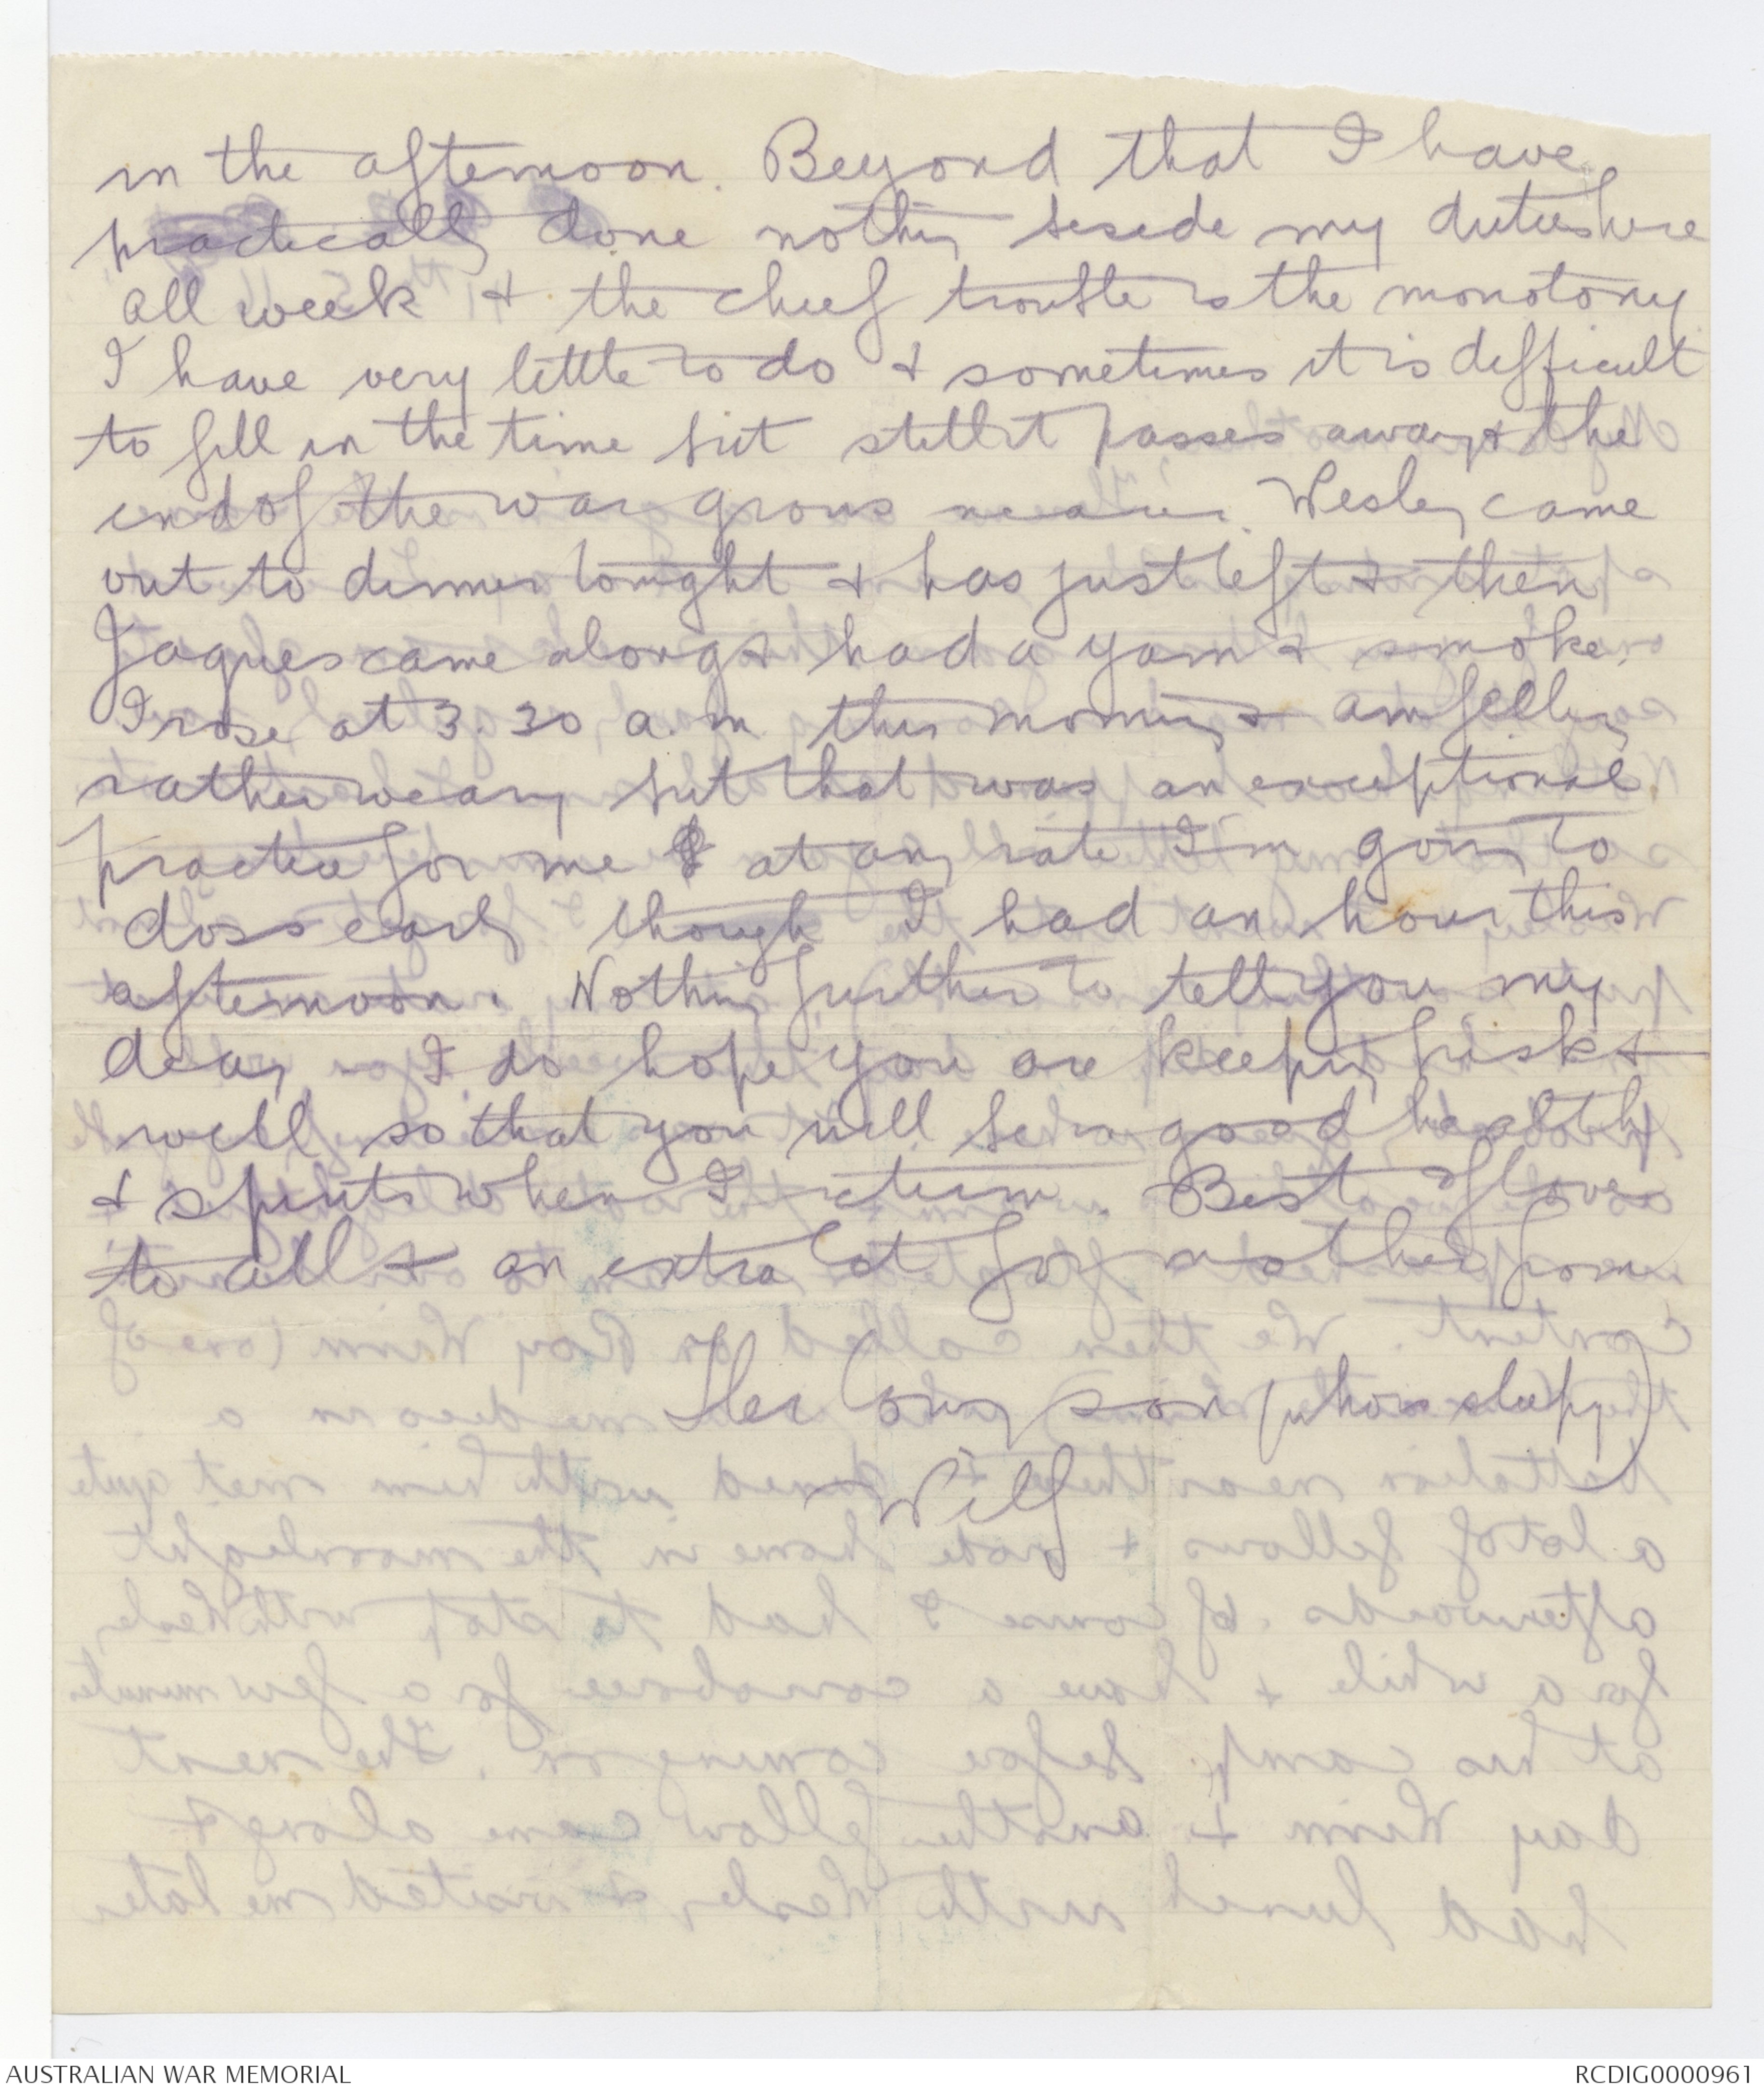 in the afternoon. Beyond that I have
practically done nothing beside my duties here
all week & the chief trouble is the monotony
I have very little to do & sometimes it is difficult
to fill in the time but still it passes away & the
end of the war grows nearer. Wesley came
out to dinner tonight & has just left & then
Jaques came along & had a yarn & smoke.
I rose at 3.30 a.m this morning & am feeling
rather weary but that was an exceptional
practice for me & at any rate I'm going to
doss early though I had an hour this
afternoon. Nothing further to tell you my
dear, I do hope you are keeping brisk &
well so that you will be in good health
& spirits when I return. Best of love
to all & an extra lot for mother from
Her loving son (who is sleepy)
Wilf
AUSTRALIAN WAR MEMORIAL
RCDIG0000961